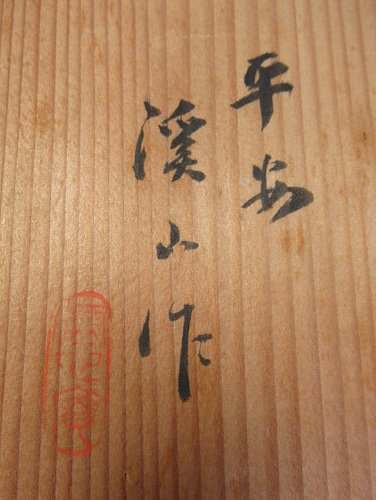 平安
溪山作